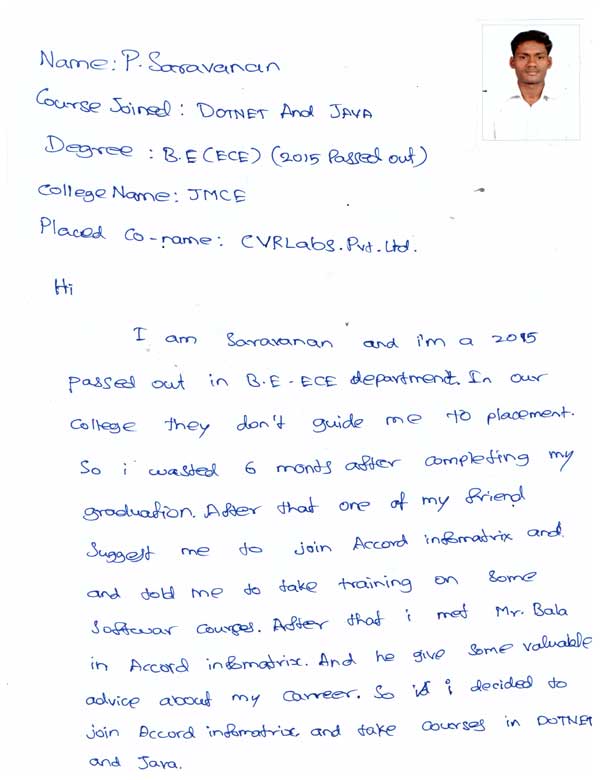 Name: P. Saravanan
Course Joined: DOTNET And JAVA
Degree: B.E (ECE) (2015 Passed out)
College Name: JMCE
Placed Co-name: CVRLabs. Pvt. Ltd.
Hi
I am Saravanan and i'm a 2015
passed out in B.E - ECE department. In our
college they don't guide me to placement.
So i wasted 6 monts after completing my
graduation. After that one of my friend
suggest me to join Accord infomatrix and
and told me to take training on some
softwar courses. After that i met Mr. Bala
in Accord infomatrix. And he give some valuable
advice about my carreer. So i decided to
join Accord infomatrix and take courses in DOTNET
and Java.